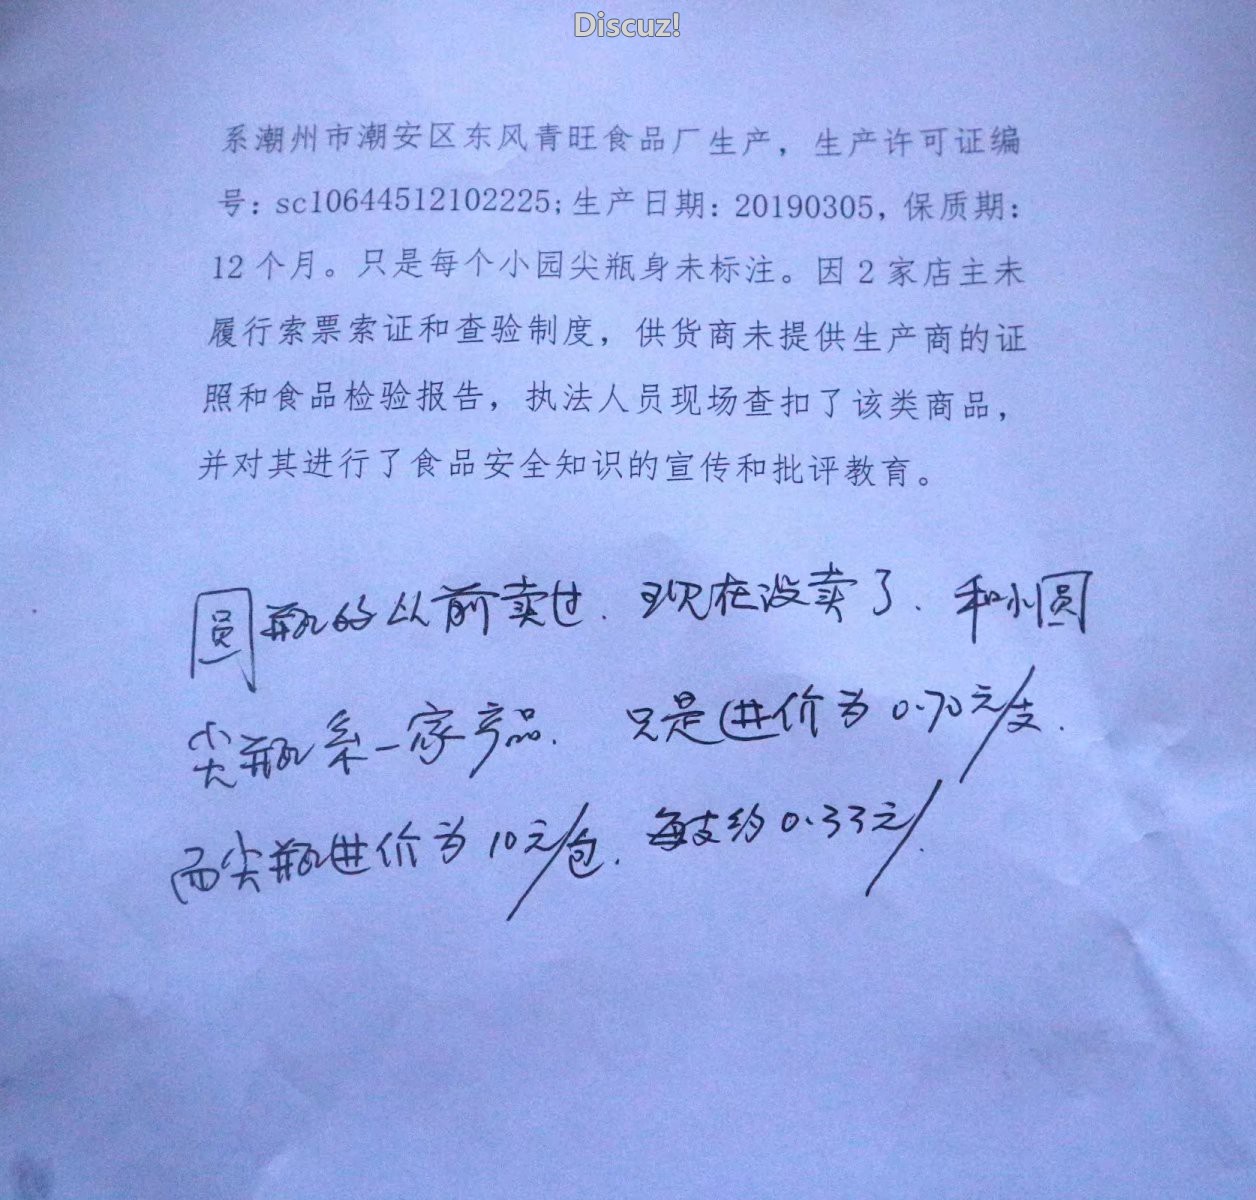 Discuz!
系潮州市潮安区东风青旺食品厂生产，生产许可证编
号：sc10644512102225；生产日期：20190305，保质期：
12个月。只是每个小园尖瓶身未标注。因2家店主未
履行索票索证和查验制度，供货商未提供生产商的证
照和食品检验报告，执法人员现场查扣了该类商品，
并对其进行了食品安全知识的宣传和批评教育。
圆瓶的以前卖过.现在没卖了.和小圆
尖瓶系一家产品.只是进价为0.70元/支.
而尖瓶进价为10元/包.每支约0.33元/.